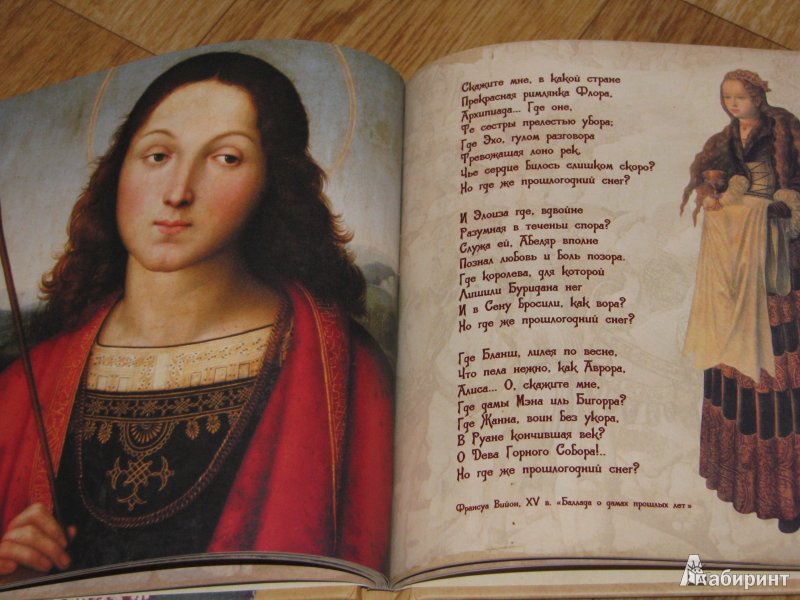 Скажите мне, в какой стране
Прекрасная римлянка Флора,
Архипиада... Где оне,
Те сестры прелестью убора;
Где Эхо, гулом разговора
Тревожащая лоно рек,
Чье сердце билось слишком скоро?
Но где же прошлогодний снег?
И Элоиза где, вдвойне
Разумная в теченьи спора?
Служа ей, Абеляр вполне
Познал любовь и боль позора.
Где королева, для которой
Лишили Буридана нег
И в Сену бросили, как вора?
Но где же прошлогодний снег?
Где Бланш, лилея по весне,
Что пела нежно, как Аврора,
Алиса... О, скажите мне,
Где дамы Мэна иль Бигорра?
Где Жанна, воин без укора,
В Руане кончившая век?
О Дева Горного Собора!..
Но где же прошлогодний снег?
Франсуа Вийон, XV в. «Баллада о дамах прошлых лет»
Лабиринт